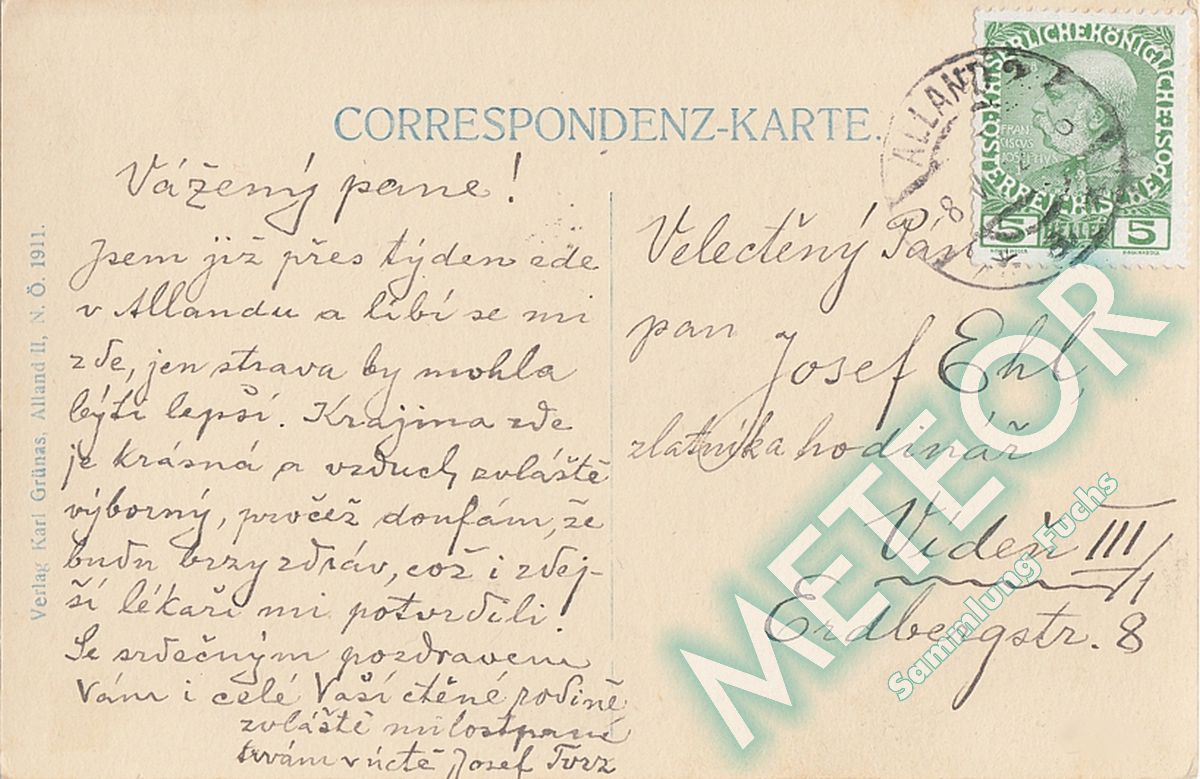 CORRESPONDENZ-KARTE.
Vážený pane!
Jsem již přes týden zde
v Allandu a líbí se mi
zde, jen strava by mohla
býti lepší. Krajina zde
je krásná a vzduch zvláště
výborný, pročež doufám, že
budu brzy zdráv, což i zdej-
ší lékaři mi potvrdili.
Se srdečným pozdravem
Vám i celé Vaší ctěné rodině
zvláště milostpaní
trvám v úctě Josef
Velectěný Pán
pan
Josef Ehl
zlatník a hodinář
Vídeň III/1
Erdbergstr. 8
Verlag Karl Grünas, Alland II, N. Ö. 1911.
ALLAND
8
KAISERLICHE KÖNIGLICHE ÖSTERREICHISCHE POST
FRAN
CISCUS
IOSEPHUS
5 HELLER 5
METEOR
Sammlung Fuchs